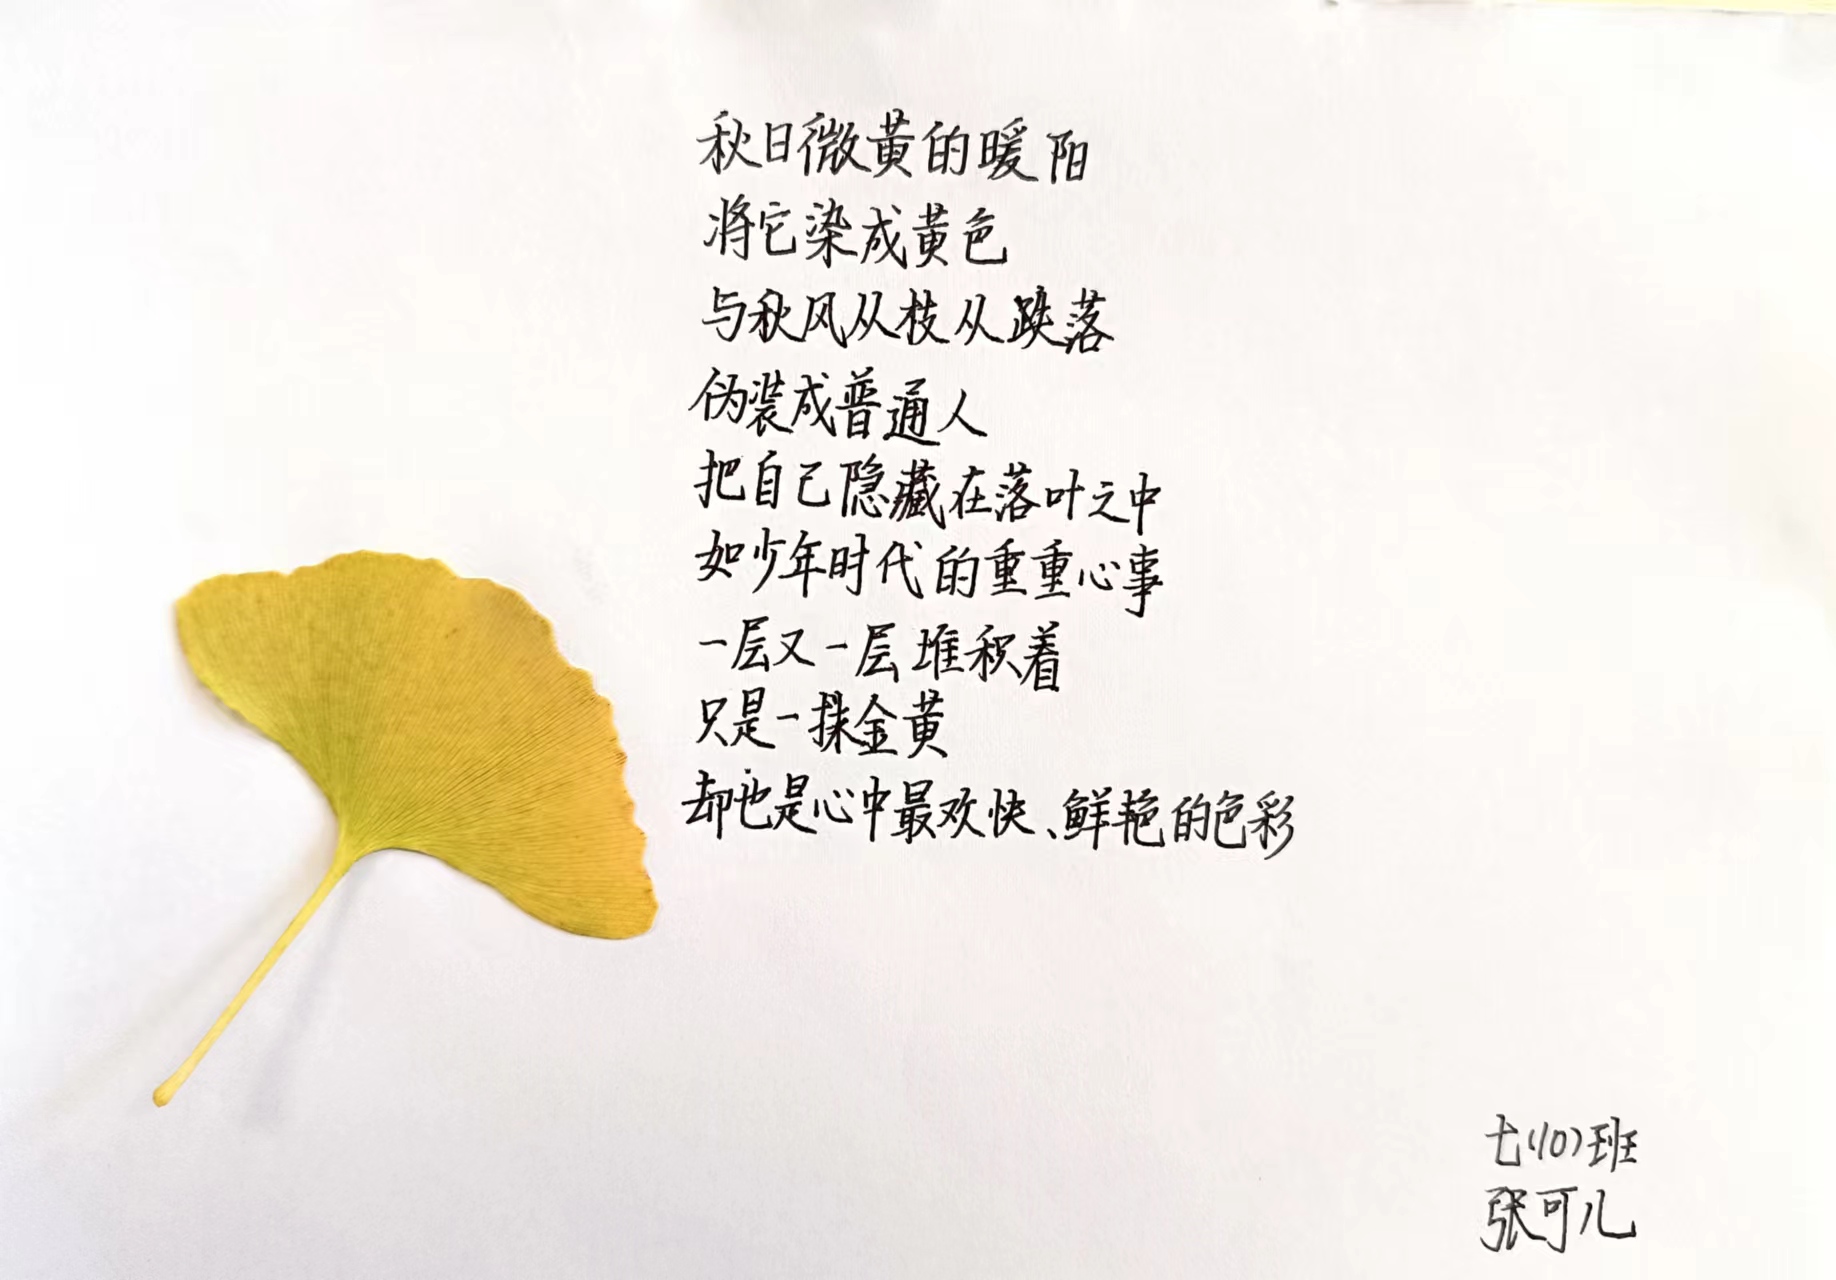 秋日微黄的暖阳
将它染成黄色
与秋风从枝从跌落
伪装成普通人
把自己隐藏在落叶之中
如少年时代的重重心事
一层又一层堆积着
只是一抹金黄
却也是心中最欢快、鲜艳的色彩
七(10)班
张可儿